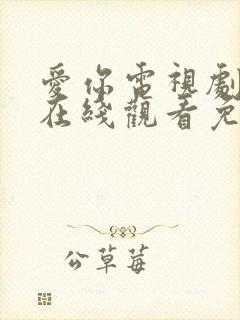 愛你電視劇
在綫觀看免
公草莓